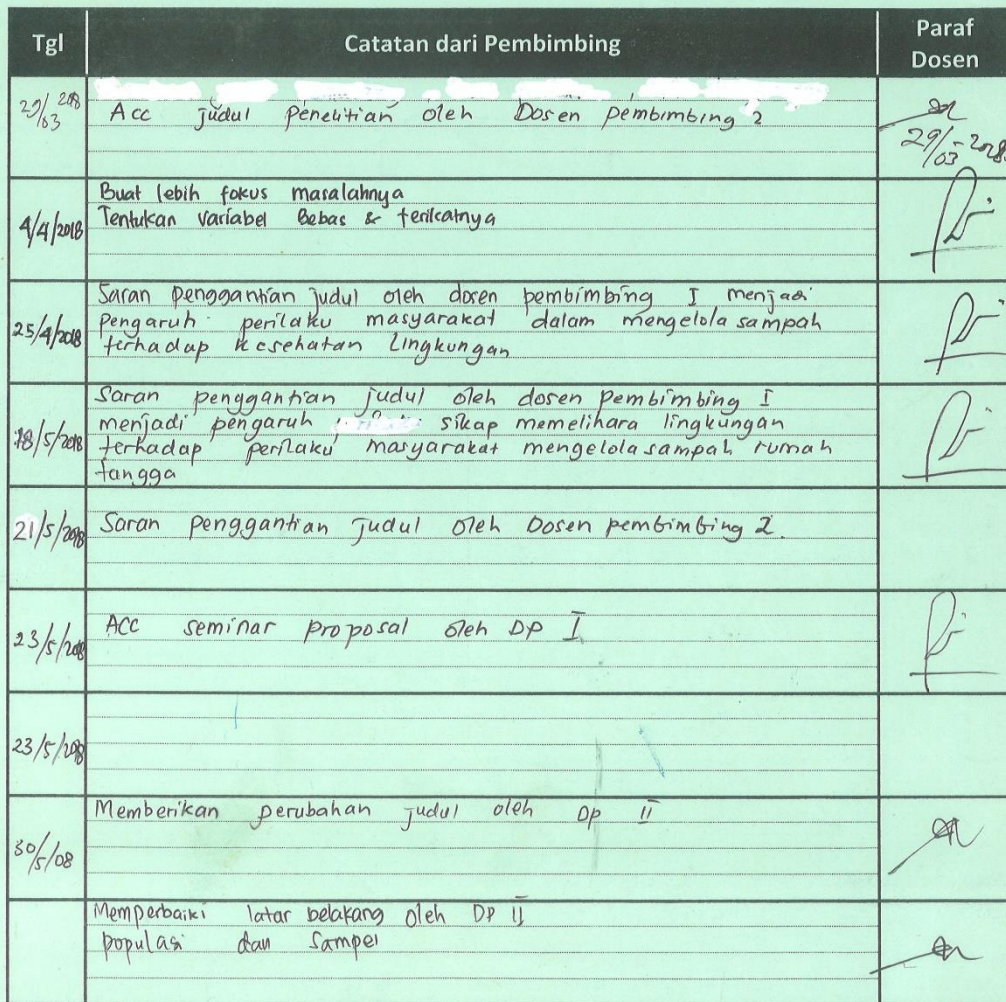 Tgl
Catatan dari Pembimbing
Paraf
Dosen
29/03 2018
Acc judul penelitian oleh Dosen pembimbing 2
29/03-2018
4/4/2018
Buat lebih fokus masalahnya
Tentukan variabel Bebas & terikatnya
25/4/2018
Saran penggantian judul oleh dosen pembimbing I menjadi
Pengaruh perilaku masyarakat dalam mengelola sampah
terhadap kesehatan lingkungan
18/5/2018
Saran penggantian judul oleh dosen Pembimbing I
menjadi pengaruh sikap memelihara lingkungan
terhadap perilaku masyarakat mengelola sampah rumah
tangga
21/5/2018
Saran penggantian judul oleh Dosen pembimbing 2.
23/5/2018
ACC seminar proposal oleh DP I
23/5/2018
30/5/08
Memberikan perubahan judul oleh DP II
Memperbaiki latar belakang oleh DP II
populasi dan sampel